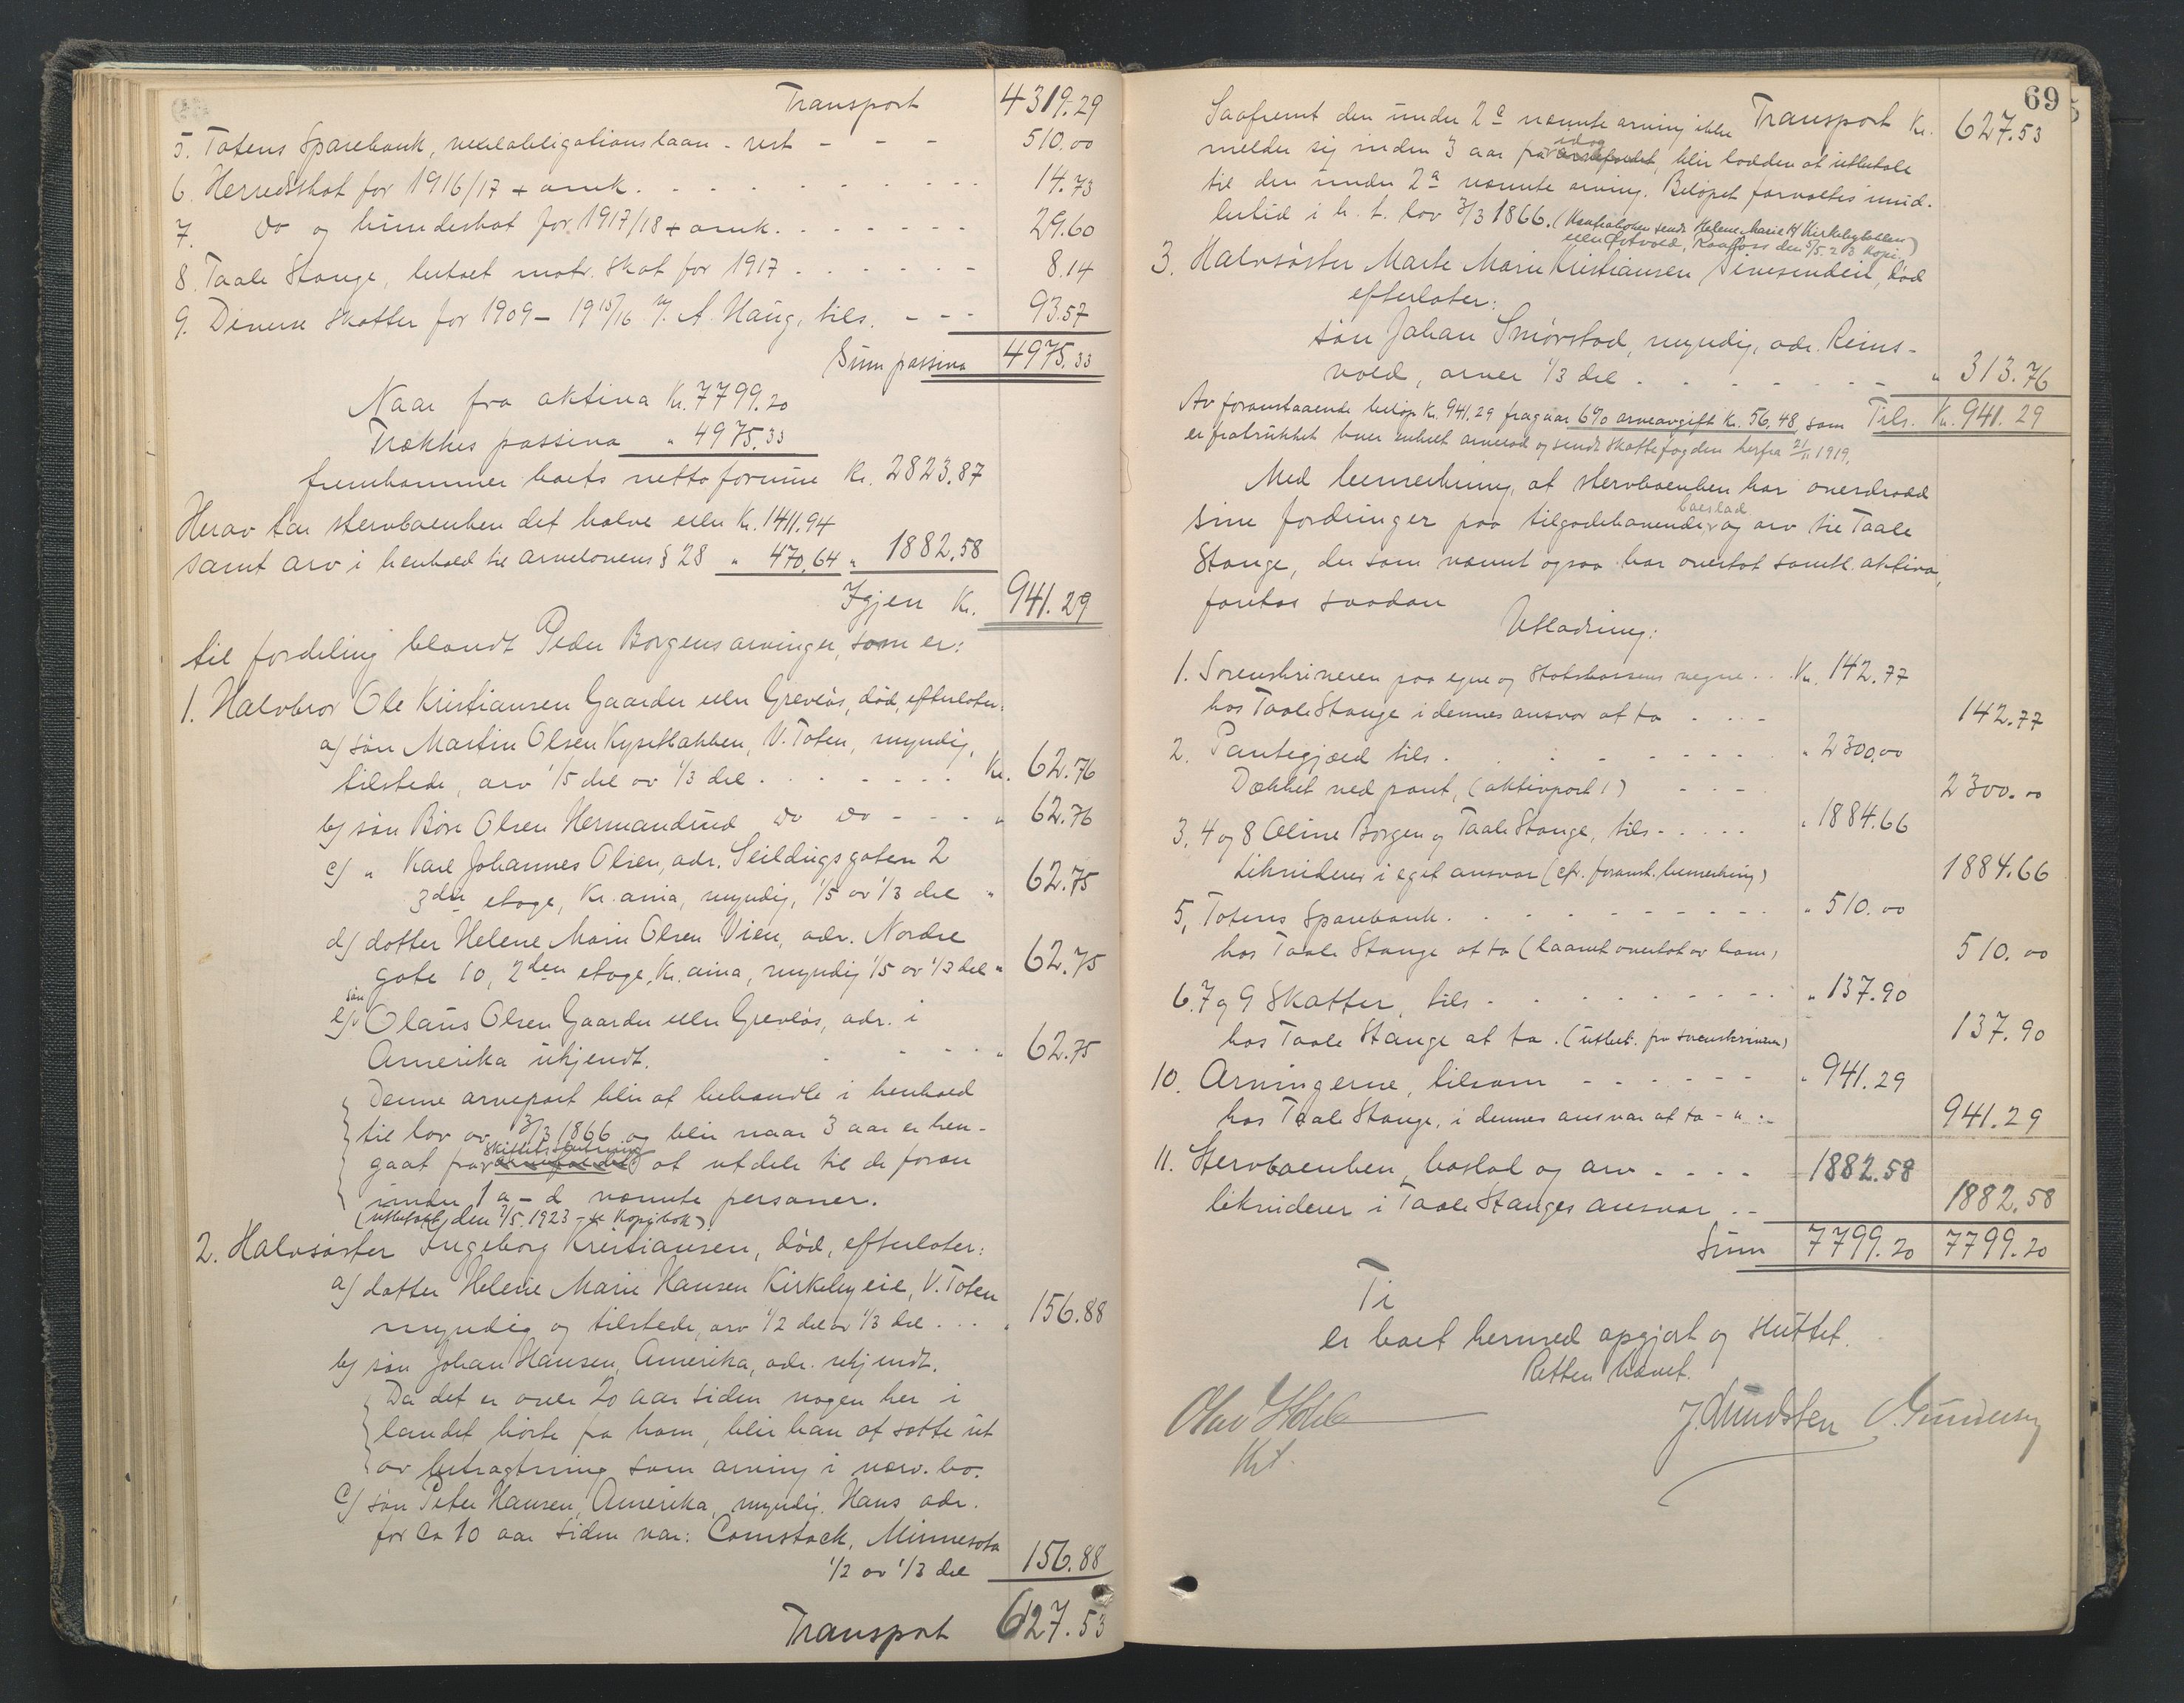 Transport 4319.29
5. Totens Sparebank, vexelobligationslaan - rest - - - 510.00
6. Herredsskat for 1916/17 + omk. 14.73
7. Do og kundeskat for 1917/18 + omk. 29.60
8. Taale Stange, betalt matr. skat for 1917 8.14
9. Diverse skatter for 1909 - 1915/16 v. A. Haug, tils. - - - 93.57
Sum passiva 4975.33
Naar fra aktiva Kr. 7799.20
Trækkes passiva " 4975.33
fremkommer boets netto formue Kr. 2823.87
Herav tar stervboenken det halve eller Kr. 1411.94
samt arv i henhold til arvelovens § 28 " 470.64 " 1882.58
Igjen Kr. 941.29
til fordeling blandt Peder Borgens arvinger, som er:
1. Halvbror Ole Kristiansen Gaarder eller Grevløs, død, efterlater:
a/ søn Martin Olsen Kysetbakken, V. Toten, myndig,
tilstede, arv 1/5 del av 1/3 del Kr. 62.76
b/ søn Børe Olsen Hermandrud do do - - - " 62.76
c/ " Karl Johannes Olsen, adr. Seildugsgaten 2
3die etage, Kr.ania, myndig, 1/5 av 1/3 del " 62.75
d/ datter Helene Marie Olsen Vien, adr. Nordre
gate 10, 2den etage, Kr.ania, myndig 1/5 av 1/3 del " 62.75
søn
e/ Olaus Olsen Gaarder eller Grevløs, adr. i
Amerika ukjendt. - - - - " 62.75
Denne arvepart blir at behandle i henhold
til lov av 3/3 1866 og blir naar 3 aar er hen-
skiftets slutning
gaat fra arvefaldet at utdele til de foran
under 1 a - d nævnte personer.
(utbetalt den 2/5 1923 - se Kopibok)
2. Halvsøster Ingeborg Kristiansen, død, efterlater:
a/ datter Helene Marie Hansen Kirkebyeie, V. Toten
myndig og tilstede, arv 1/2 del av 1/3 del . . . " 156.88
b/ søn Johan Hansen, Amerika, adr. ukjendt.
Da det er over 20 aar siden nogen her i
landet hørte fra ham, blir han at sætte ut
av betragtning som arving i nærv. bo.
c/ søn Peter Hansen, Amerika, myndig. Hans adr.
for ca 10 aar siden var: Comstock, Minnesota
1/2 av 1/3 del 156.88
Transport 627.53
69
Transport Kr. 627.53
Saafremt den under 2 c nævnte arving ikke
idag
melder sig inden 3 aar fra arvefaldet, blir lodden at utbetale
til den under 2 a nævnte arving. Beløpet forvaltes imid-
lertid i h. t. lov 3/3 1866. (Kontrabok sendt Helene Marie H/ Kirkebybakken
eller Østvold, Raufoss den 5/5.23 Kopi.)
3. Halvsøster Marte Marie Kristiansen Sivesindeie, død
efterlater:
søn Johan Smørstad, myndig, adr. Reins-
vold, arver 1/3 del " 313.76
Tils. Kr. 941.29
Av foranstaaende beløp Kr. 941.29 fragaar 6% arveavgift Kr. 56.48 som
er fratrukket hver enkelt arvelod og sendt skattefogden herfra 21/11 1919.
Med bemerkning, at stervboenken har overdradd
boeslod
sine fordringer paa tilgodehavende og arv til Taale
Stange, der som nævnt ogsaa har overtat samtl. aktiva,
foretas saadan
Utlodning:
1. Sorenskriveren paa egne og Statskassens vegne . . Kr. 142.77
hos Taale Stange i dennes ansvar at ta 142.77
2. Pantegjæld tils. " 2300.00
Dækket ved pant, (aktivpost 1) 2300.00
3, 4 og 8 Oline Borgen og Taale Stange, tils. " 1884.66
Likviderer i eget ansvar (cfr. foranst. bemerkning) 1884.66
5. Totens Sparebank. " 510.00
hos Taale Stange at ta (laanet overtat av ham) 510.00
6. 7 og 9 Skatter, tils " 137.90
hos Taale Stange at ta. (utbet. fra sorenskriveren) 137.90
10. Arvingerne, tilsam " 941.29
hos Taale Stange, i dennes ansvar at ta 941.29
11. Stervboenken, boslod og arv - - - - 1882.58
likviderer i Taale Stanges ansvar 1882.58
Sum 7799.20 7799.20
Ti
er boet hermed opgjort og sluttet.
Retten hævet.
J. Lundsten